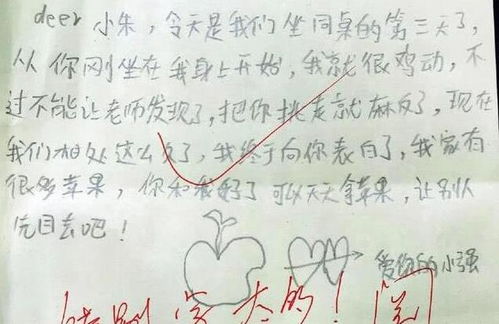 deer 小朱，今天是我们坐同桌的第三天了，
从你刚坐在我身上开始，我就很鸡动，不
过不能让老师发现了，把你挑走就麻反了，现在
我们相处这么久了，我终于向你表白了，我家有
很多苹果，你和我好了可以天天拿苹果，让别人
先目去吧！
爱你的小强